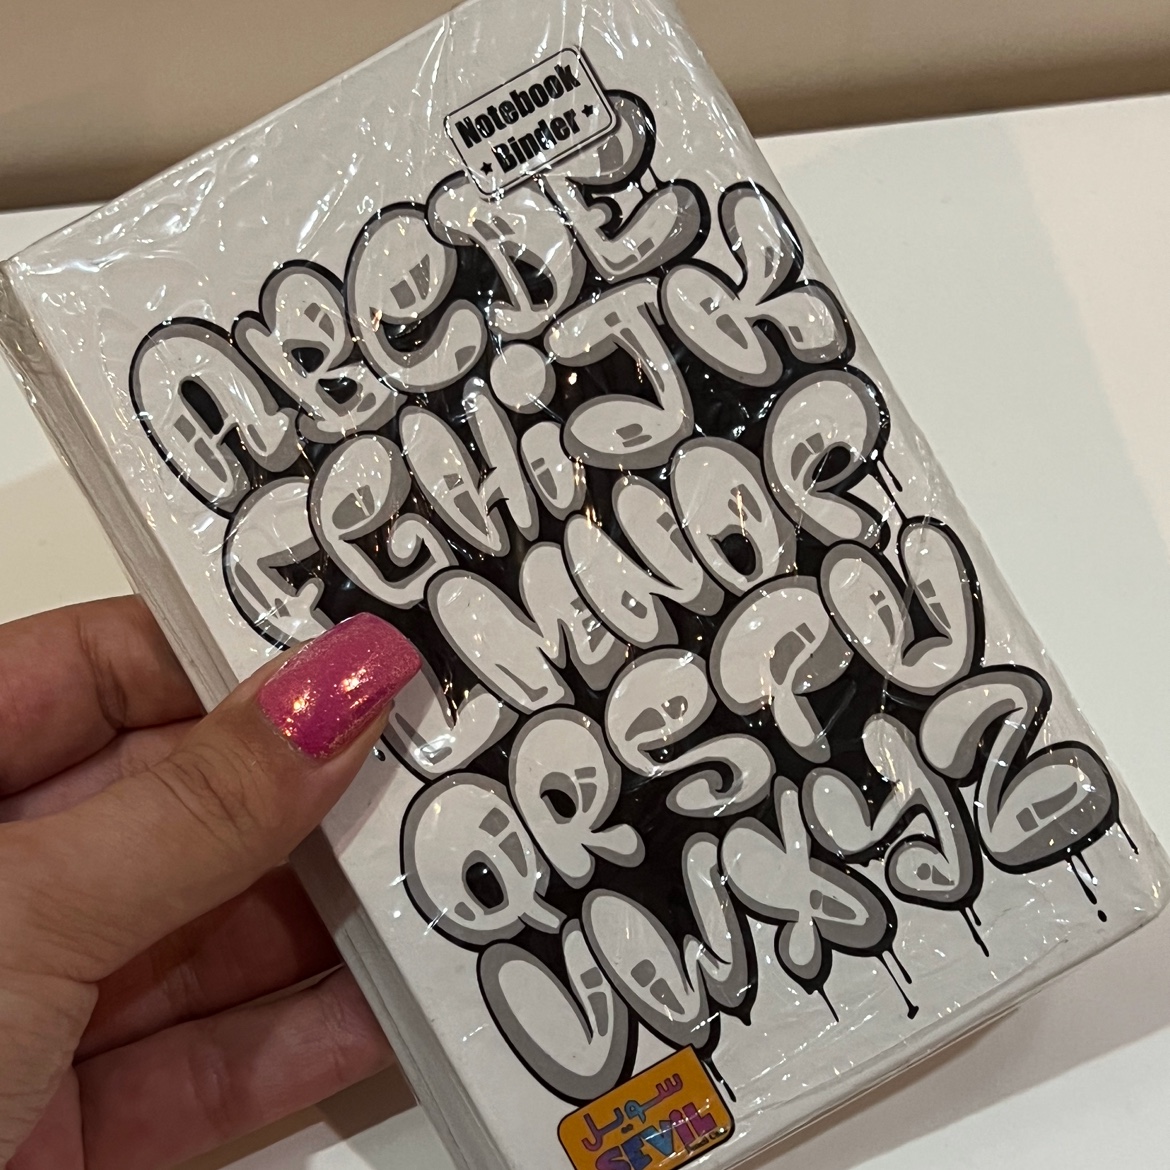 Notebook
★ Binder ★
ABCDE
FGHIJK
LMNOP
QRSTU
VWXYZ
سویل
SEVIL